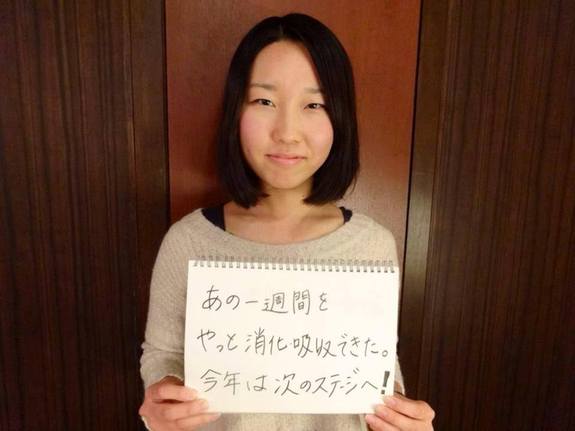 あの一週間を
やっと消化・吸収できた。
今年は次のステージへ!